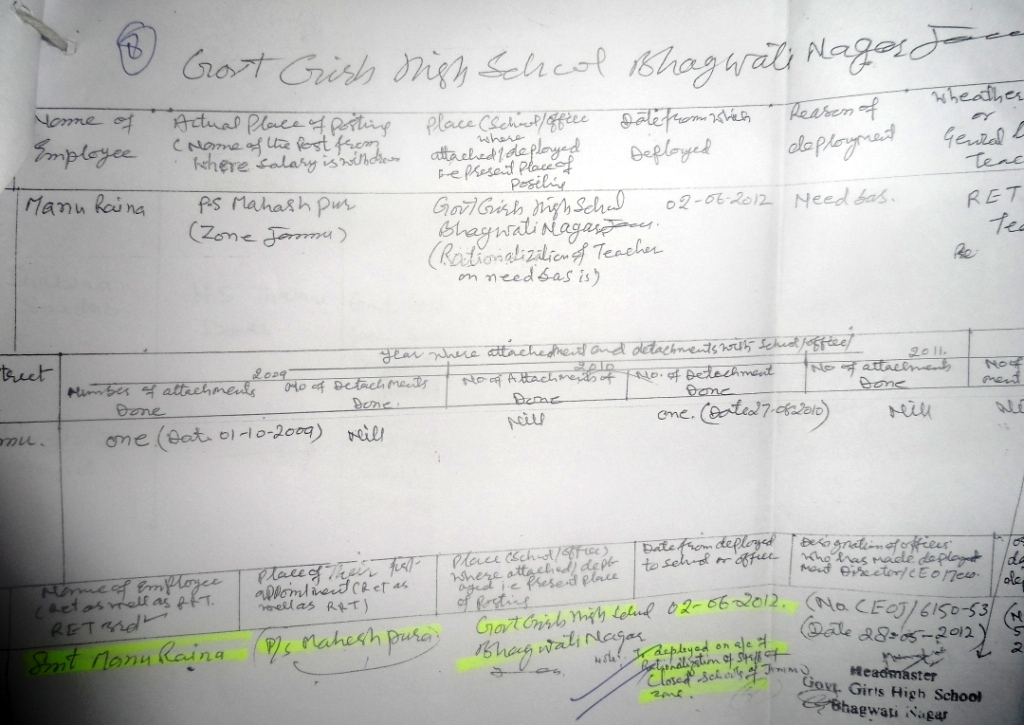 8
Govt Girls High School Bhagwati Nagar
Name of Employee
Actual Place of Posting
(Name of the Post from
where salary is withdrawn
Place (School/office
where
attached/deployed
i.e present Place of
Posting
Date from which
Deployed
Reason of
deployment
wheather
or
Genral
Teac
Manu Raina
P/S Mahash Pur
(Zone Jammu)
Govt Girls High School
Bhagwati Nagar
(Rationalization of Teacher
on need basis)
02-06-2012
Need bas.
RET
Tea
Re
Year where attachedment and detachments with School/office/
2009
2010
2011.
trect
Number of attachments
Done
No of Detachments
Done.
No of Attachments of
Done
No. of Detachment
Done
No of attachments
Done
No of
ment
mu.
one (Dat. 01-10-2009)
Nill
Nill
one. (Date 27-08-2010)
Nill
Ni
Name of Employee
(Ret as well as RRT.
RET 3rd
Place of Their first
appointment (Ret as
well as RRT)
Place (School/office)
where attached/depl-
oyed i.e present place
of Posting
Date from deployed
to school or office
Designation of officer
who has made deploy-
ment Director/CEO/
Smt Manu Raina
P/s Mahesh pura
Govt Girls High School
Bhagwati Nagar
02-06-2012.
(No. CEOJ/6150-53
(Date 28-05-2012)
Note:- Is deployed on a/c of
Rationalization of Staff of
Closed schools of Jammu
zone.
Headmaster
Govt. Girls High School
Bhagwati Nagar